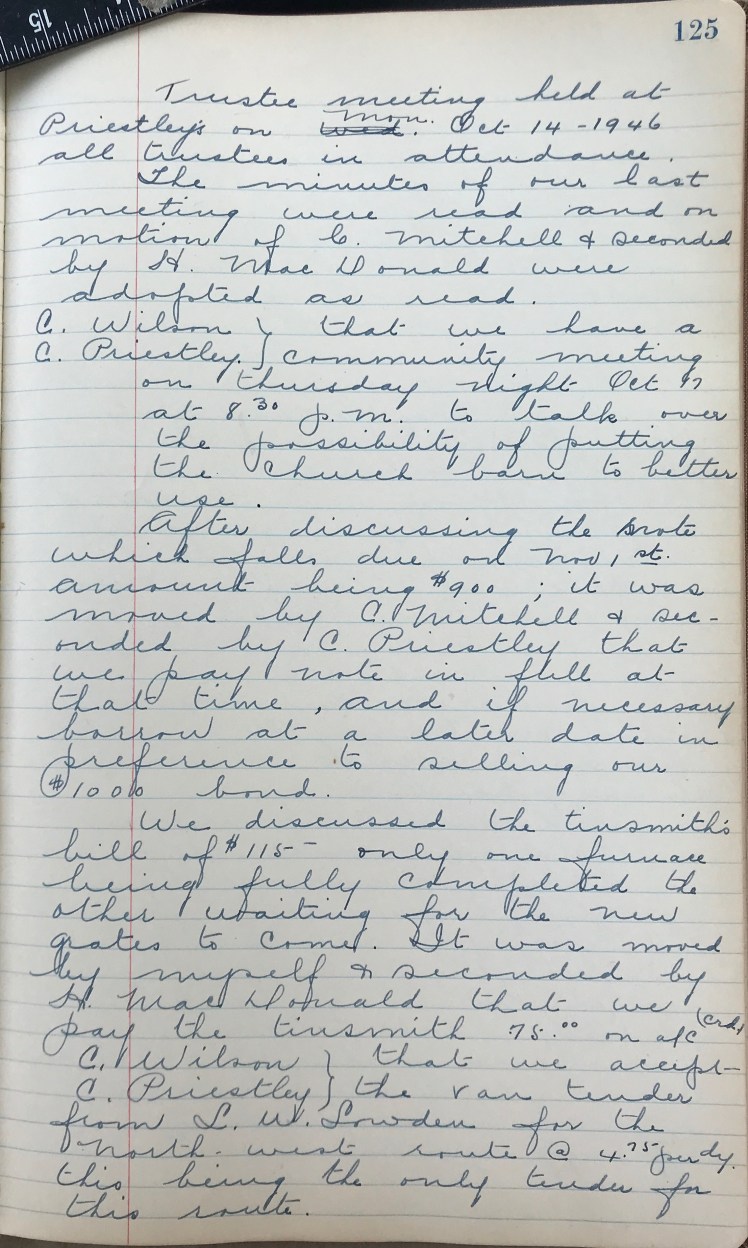 15
125
Trustee meeting held at
Priestley's on Wed. Mon. Oct 14 - 1946
all trustees in attendance.
The minutes of our last
meeting were read and on
motion of C. Mitchell & seconded
by H. MacDonald were
adopted as read.
C. Wilson } that we have a
C. Priestley } community meeting
on thursday night Oct 17
at 8.30 p.m. to talk over
the possibility of putting
the Church barn to better
use.
After discussing the note
which falls due on Nov, 1 st.
amount being $900 ; it was
moved by C. Mitchell & sec-
onded by C. Priestley that
we pay note in full at
that time, and if necessary
borrow at a later date in
preference to selling our
$1000 bond.
We discussed the tinsmith's
bill of $115- only one furnace
being fully completed the
other waiting for the new
grates to come. It was moved
by myself & seconded by
H. MacDonald that we
pay the tinsmith 75.00 on a/c (crd.)
C. Wilson } that we accept
C. Priestley } the van tender
from L. W. Lowden for the
North-west route @ 4.75 per dy.
this being the only tender for
this route.